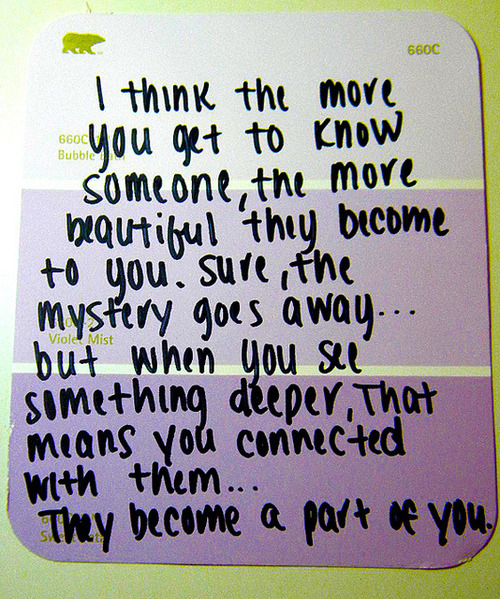 660C
I think the more
660C
you get to know
Bubble
someone, the more
beautiful they become
to you. Sure, the
mystery goes away...
Violet Mist
but when you see
something deeper, That
means you connected
with them...
They become a part of you.